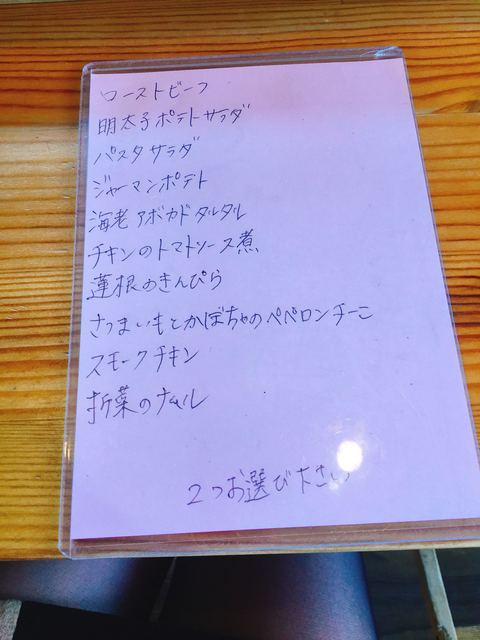 ローストビーフ
明太子ポテトサラダ
パスタサラダ
ジャーマンポテト
海老アボカドタルタル
チキンのトマトソース煮
蓮根のきんぴら
さつまいもとかぼちゃのペペロンチーニ
スモークチキン
折菜のナムル
2つお選び下さい